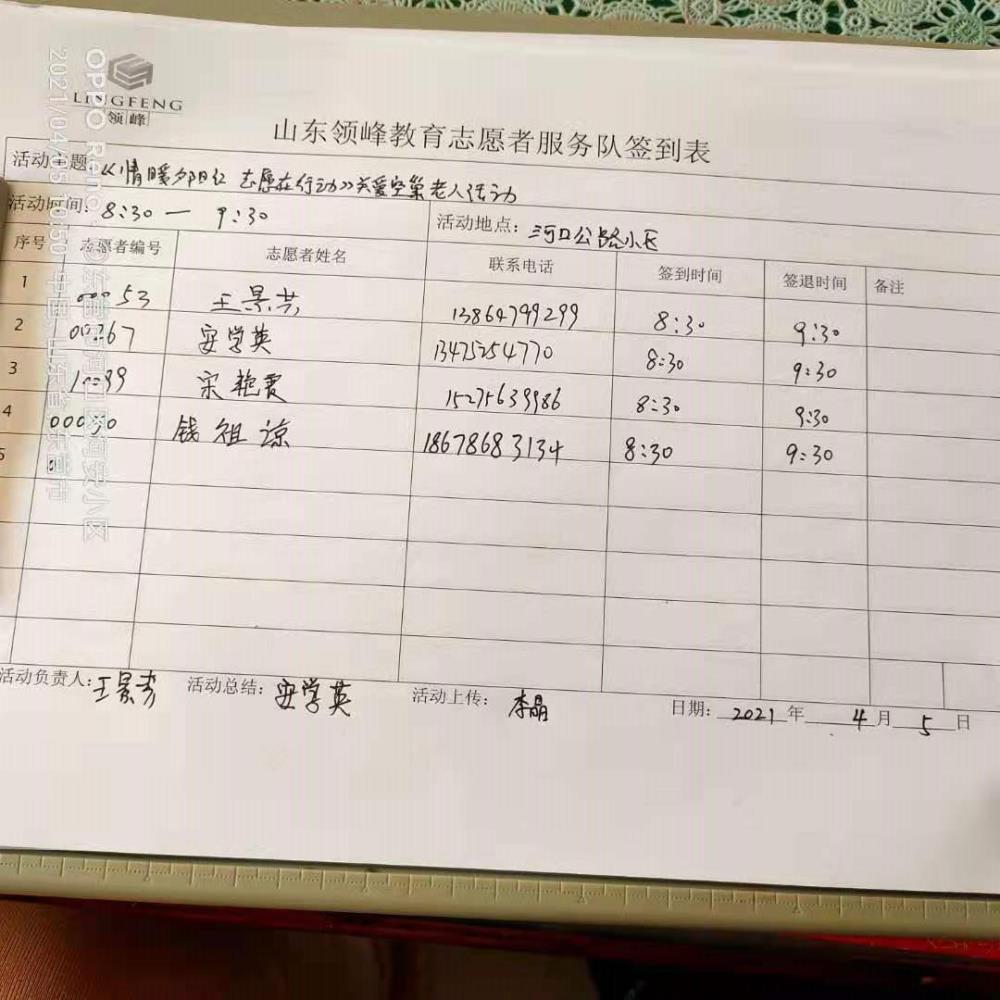 LINGFENG
领峰
山东领峰教育志愿者服务队签到表
活动主题：《情暖夕阳红 志愿在行动》关爱空巢老人活动
活动时间：8:30 — 9:30 活动地点：河口公路小区
序号 志愿者编号 志愿者姓名 联系电话 签到时间 签退时间 备注
1 王景芳 13864799299 8:30 9:30
2 安学英 13475254770 8:30 9:30
3 宋艳霞 15275639986 8:30 9:30
4 钱祖谅 18678683134 8:30 9:30
5
活动负责人：王景芳 活动总结：安学英 活动上传：李晶 日期：2021年4月5日
OPPO Reno
2021/04/05 10:50 中国·山东省东营市
©东营市河口区河安小区